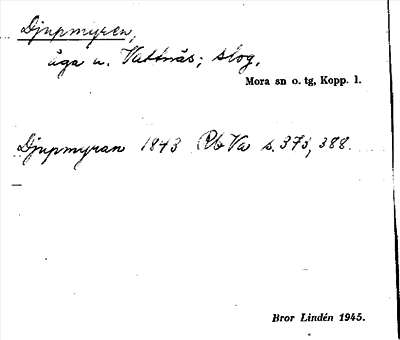 Djupmyren,
äga u. Vattnäs; slog.
Mora sn o. tg, Kopp. l.
Djupmyran 1843 Rb Va s. 373, 388.
Bror Lindén 1945.